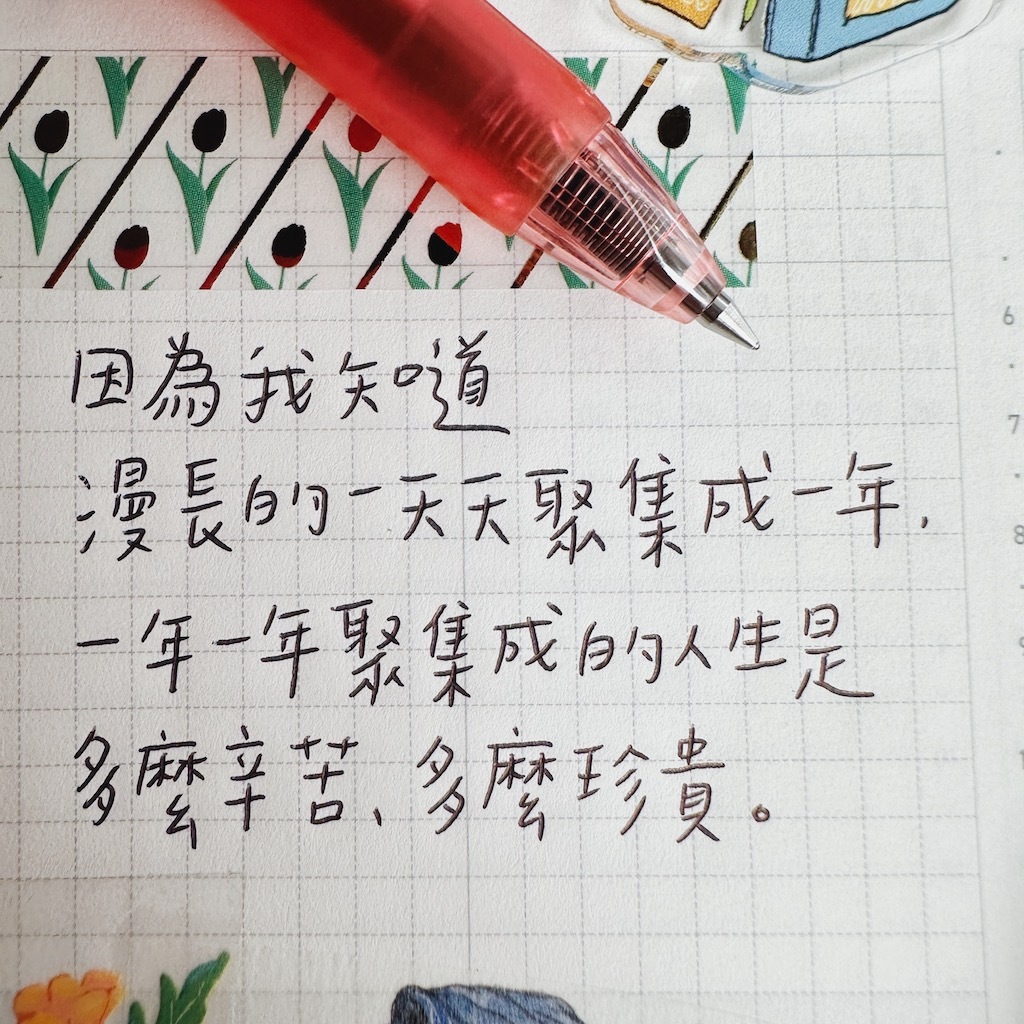 因為我知道
漫長的一天天聚集成一年,
一年一年聚集成的人生是
多麼辛苦、多麼珍貴。
6
7
8